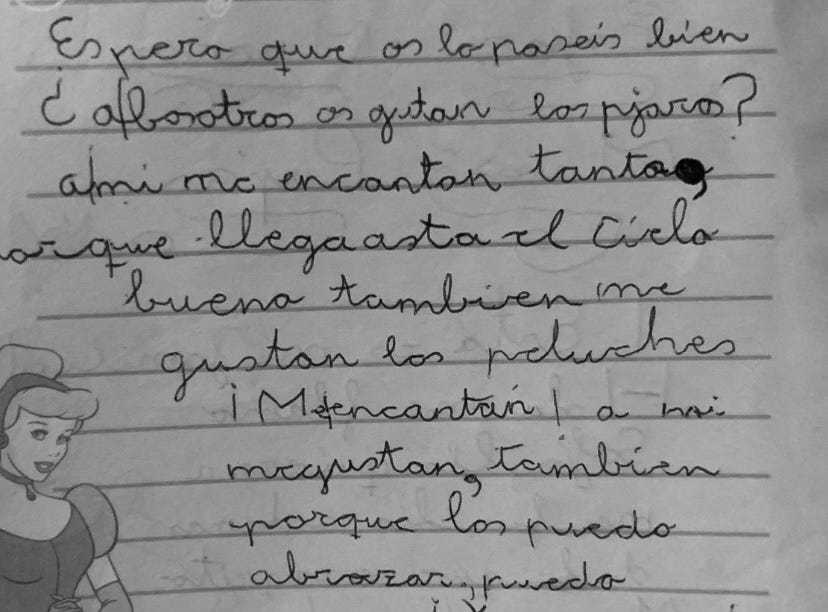 Espero que os lo paseis bien
¿a/bosotros os gutan los pjaros?
a/mi me encantan tanto,
orque llega asta el cielo
buena tambien me
gustan los peluches
¡Me/encantan! a mi
megustan, tambien
porque los puedo
abrazar, puedo